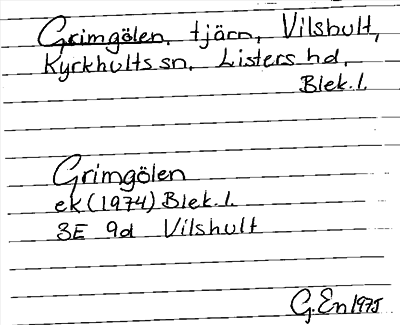 Grimgölen, tjärn, Vilshult,
Kyrkhults sn, Listers hd,
Blek. l.
Grimgölen
ek (1974) Blek. l.
3E 9d Vilshult
G. En 1975